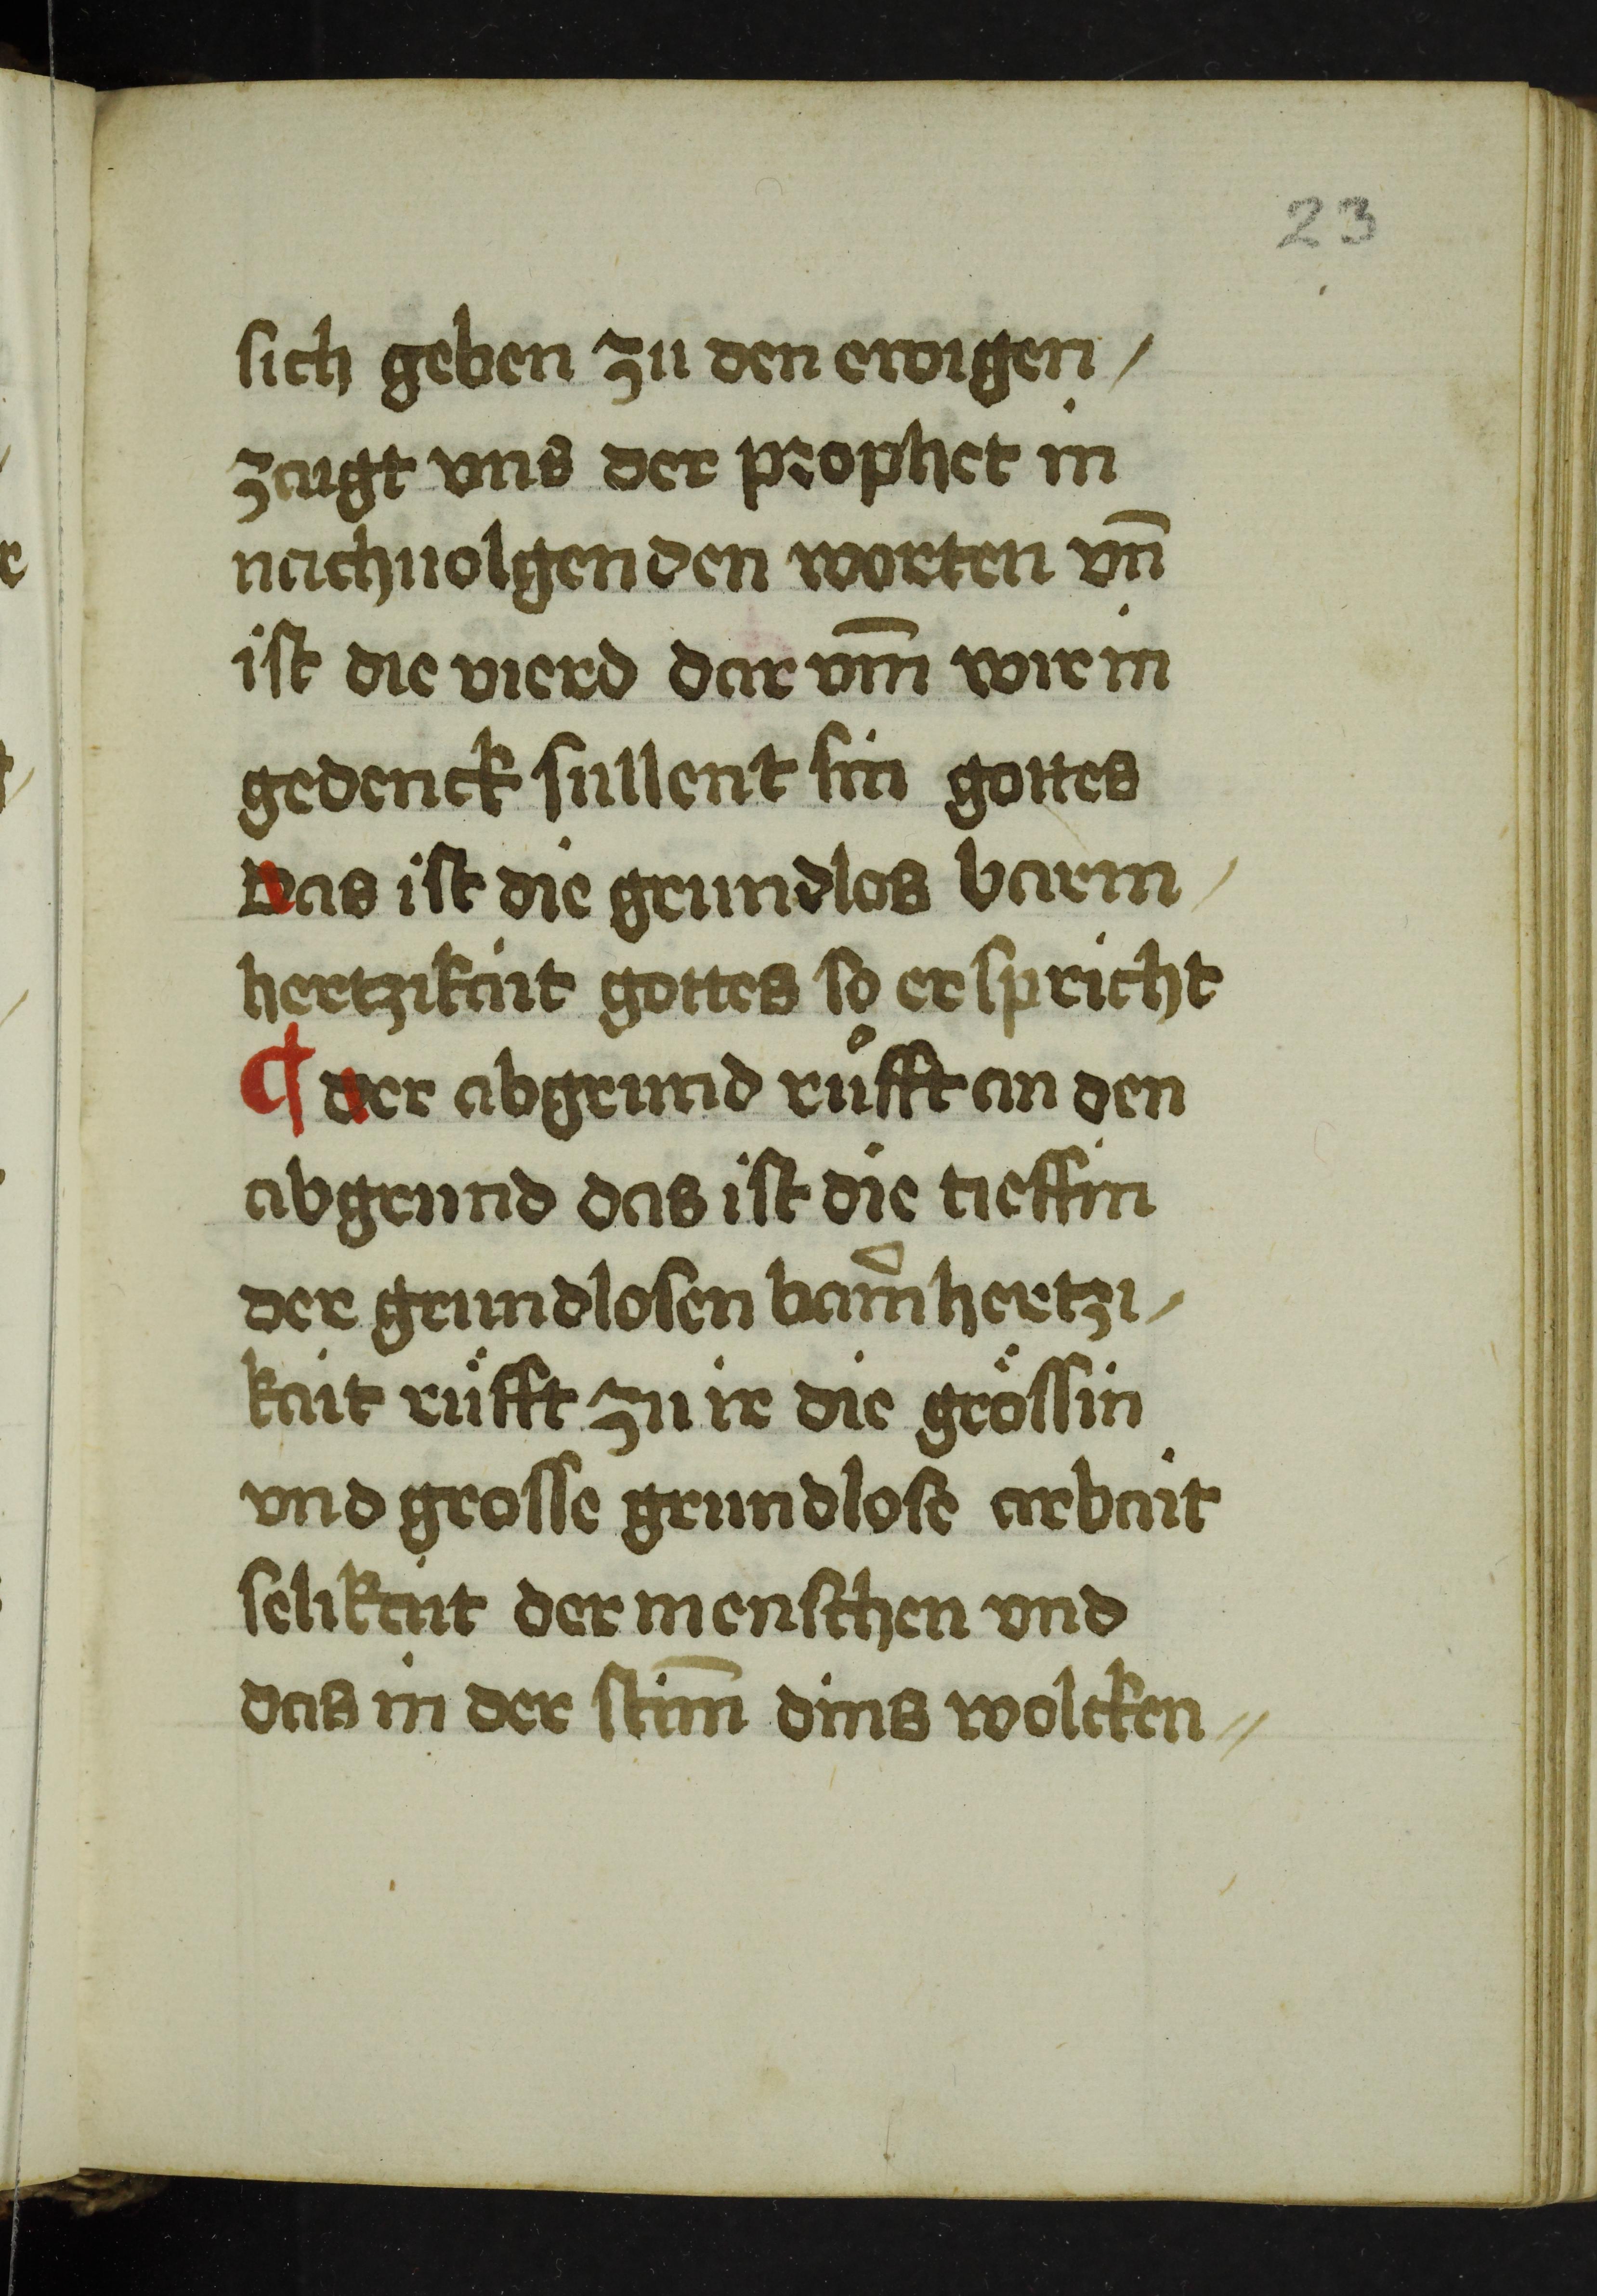 23
sich geben zu den ewigen /
zaigt vns der prophet in
nachuolgenden worten vn̄
ist die vierd dar vm̄ wir in
gedenck sullent sin gottes
Das ist die grundlos barm /
hertzikait gottes so er spricht
¶ der abgrund ruͦfft an den
abgrund das ist die tieffin
der grundlosen bam̄hertzi /
kait rüfft zu ir die grössin
vnd grosse grundlose arbait
selikait der menschen vnd
das in der stim̄ dins wolcken //